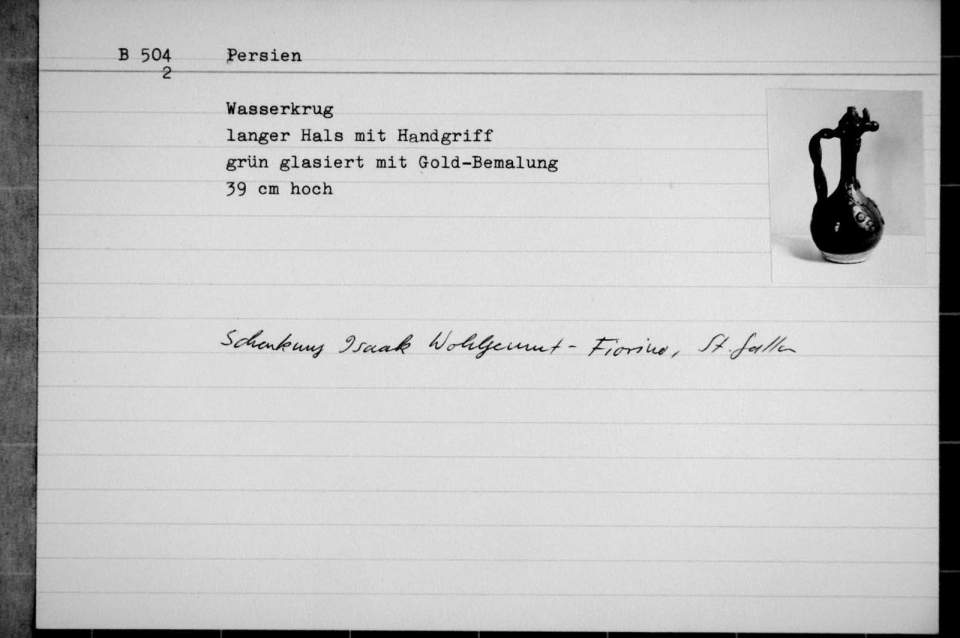 B 504 Persien
2
Wasserkrug
langer Hals mit Handgriff
grün glasiert mit Gold-Bemalung
39 cm hoch
Schenkung Isaak Wohlgemut - Fiorino, St. Gallen